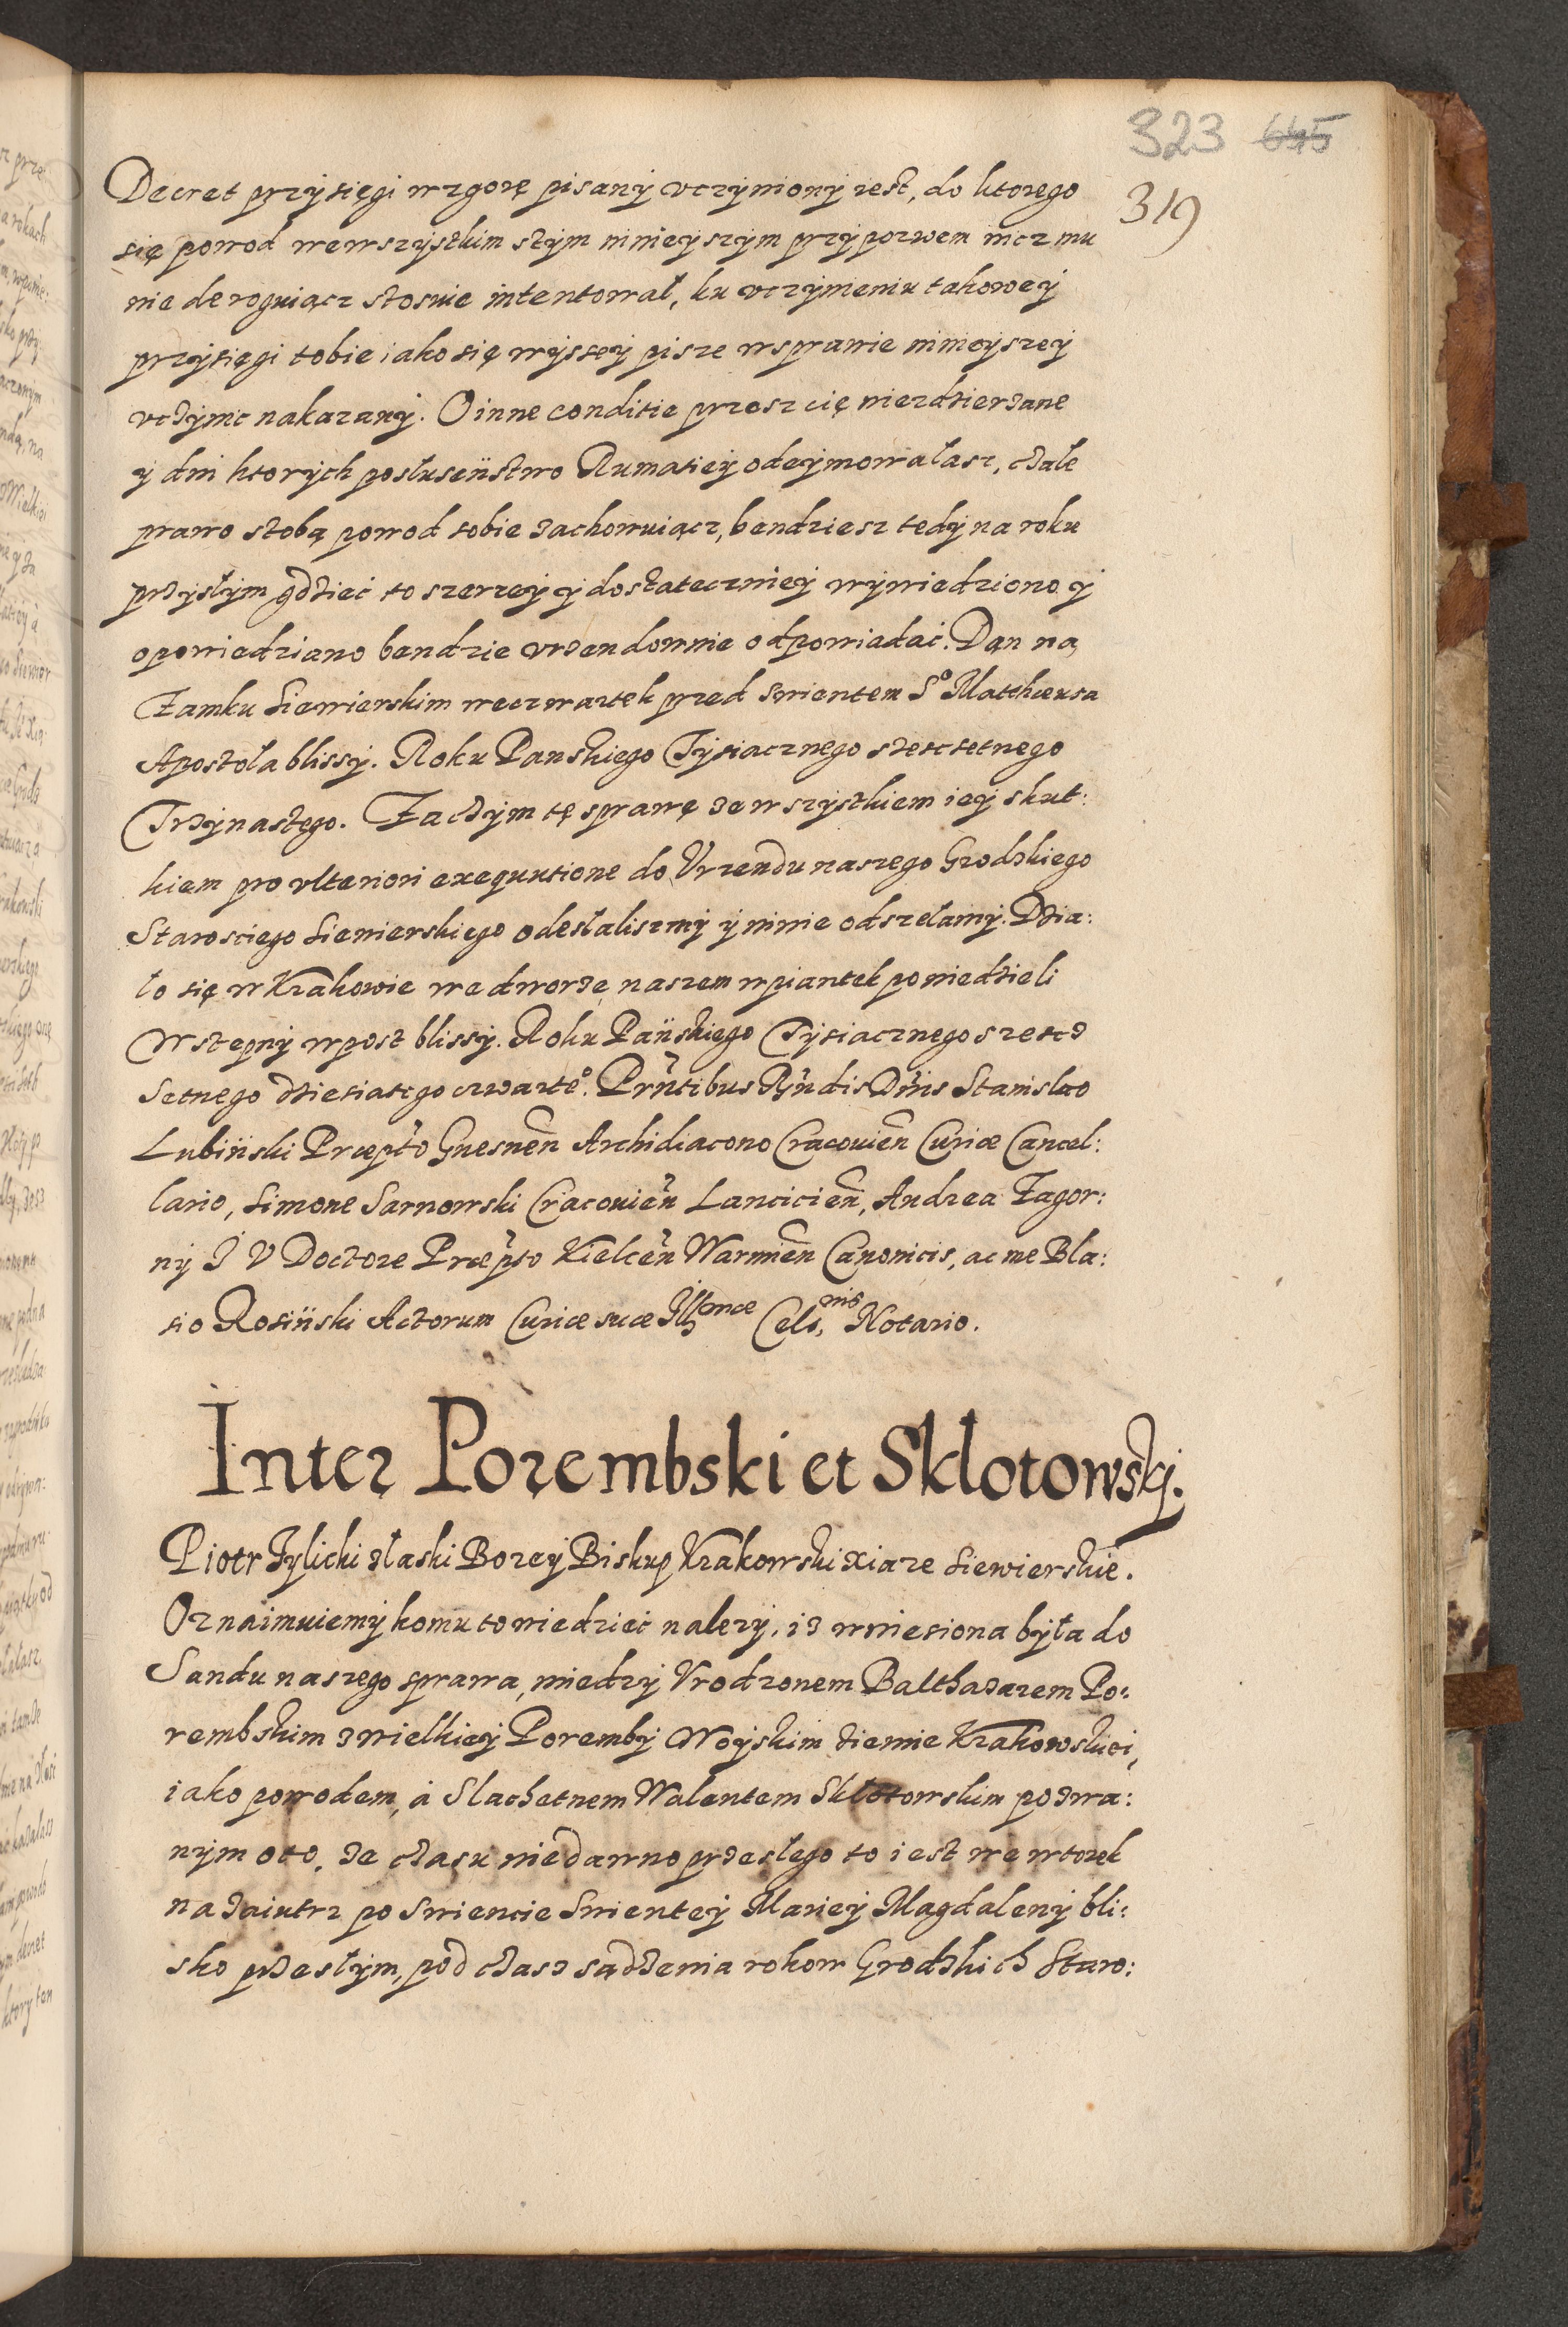 323 645
319
Decret przysięgi wzgorę pisany vczyniony iest, do ktorego
się powod wewszystkim stym ninieyszym przypozwem nicz mu
nie deroguiącz stosuie intentował, ku vczynieniu takowey
przysięgi tobie iako się wyssey pisze wsprawie ninieyszey
vczynic nakazany. O inne conditie przosz cię niezdzierzane
y dni ktorych posłuseństwo Rumatiey odeymowałasz, czałe
prawo stobą powod sobie zachowuiącz, bendziesz tedy na roku
przysłym gdzieć to szerzey y dostateczniey wywiedziono y
opowiedziano bendzie vrzendownie odpowiadać. Dan na
Zamku Siewierskim weczwartek przed Swientem So Matthæusza
Apostoła blissy. Roku Panskiego Tysiacznego szescsetnego
Trzynastego. Zaczym tę sprawę zewszystkiem iey skut:
kiem pro vlteriori exequutione do Vrzendu naszego Grodzkiego
Starosciego Siewierskiego odesłalismy y ninie odszełamy. Dzia:
ło się w Krakowie we dworze naszem wpiantek poniedzieli
Wstepny wpost blissy. Roku Pańskiego Tysiacznego szescz
Setnego dziesiastego czwarteo. Prntibus Rndis Dnis Stanislao
Lubiński Præpto Gnesnen Archidiacono Cracouien Curiæ Cancel:
lario, Simone Sarnowski Cracouien Lancicien, Andrea Zagor:
ny I V Doctore Præpto Kielcen Warmien Canonicis, ac me Bla:
sio Rosiński Actorum Curiæ suæ Illmæ Cels,nis Notario.
Inter Porembski et Sklotowskj.
Piotr Tylicki złaski Bozey Biskup Krakowski Xiaze Siewierskie.
Oznaimuiemy komu to wiedzieć nalezy, iz wniesiona była do
Sandu naszego sprawa, miedzy Vrodzonem Balthazarem Po:
rembskim zwielkiey Poremby Woyskim ziemie Krakowskiei,
iako powodem, à Slachetnem Walentem Sklotowskim pozwa:
nym oto, ze czasu niedawno przeslego to iest we wtorek
na zaiutrz po Swiencie Swientey Mariey Magdaleny bli:
sko przesłym, pod czasz sądzenia rokow Grodzkich Staro: